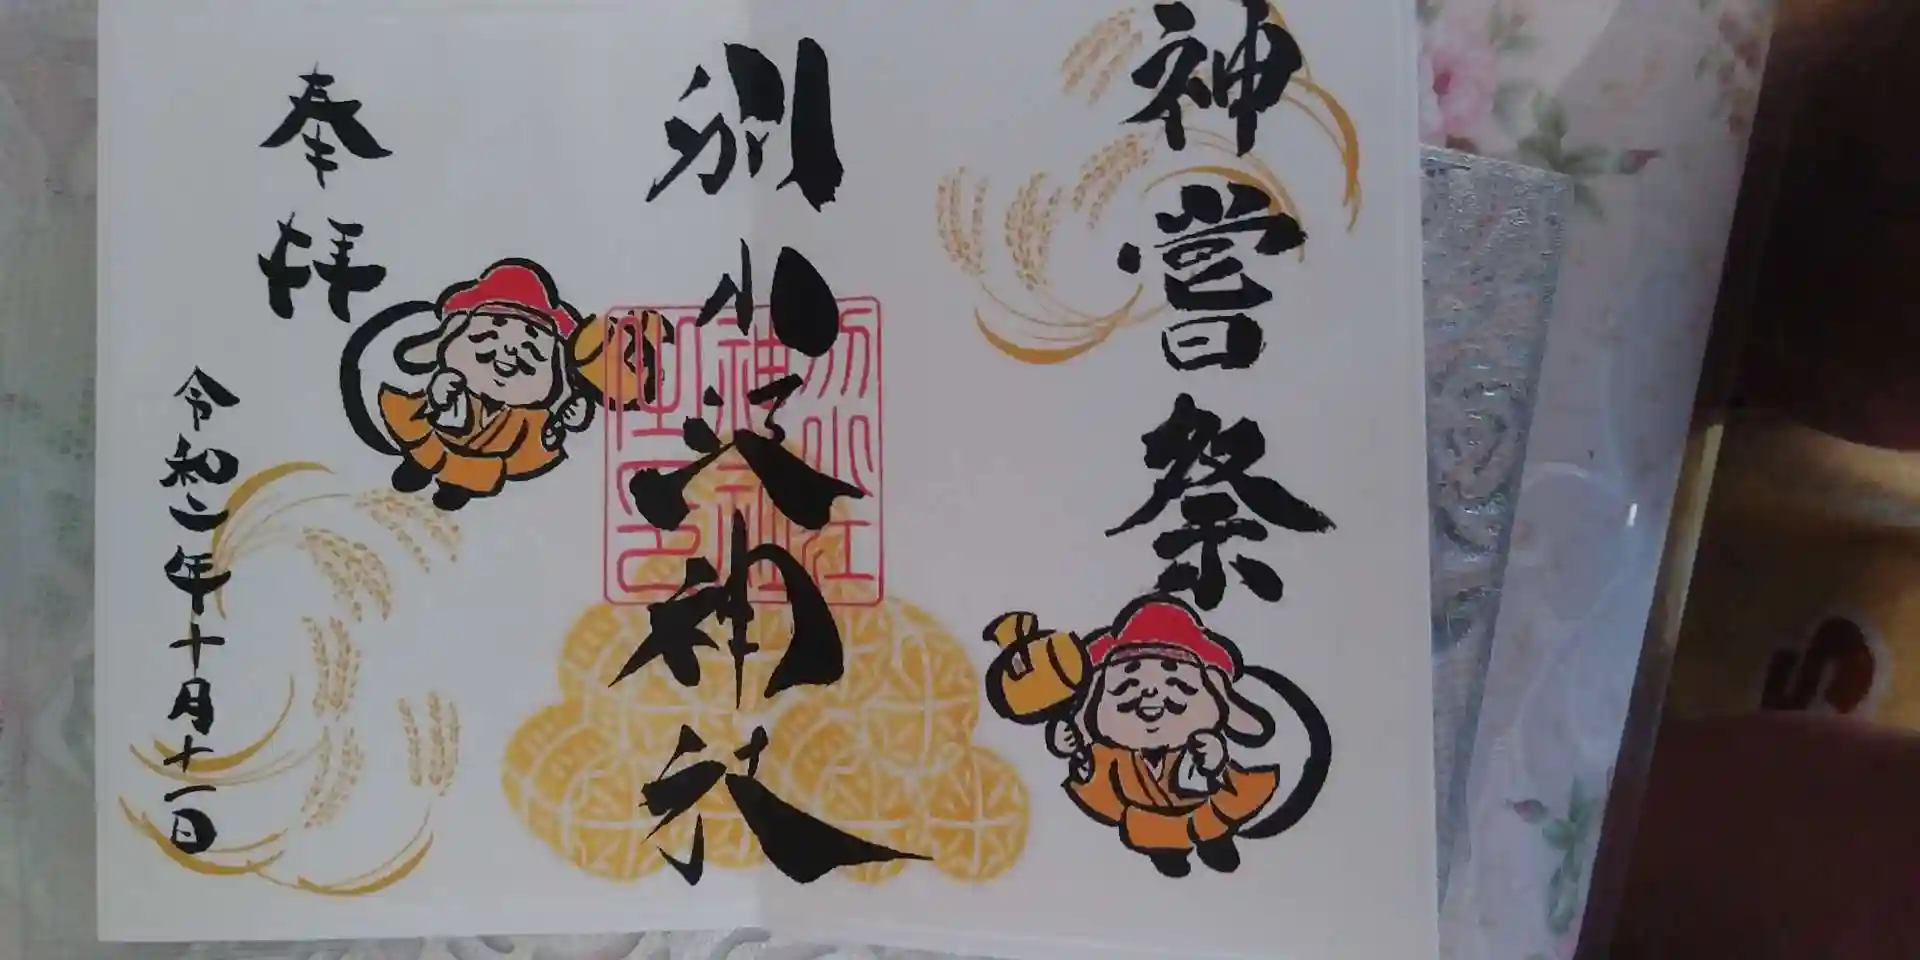 神嘗祭
別小江神社
別小江
神社
之印
奉拝
令和二年十月十一日